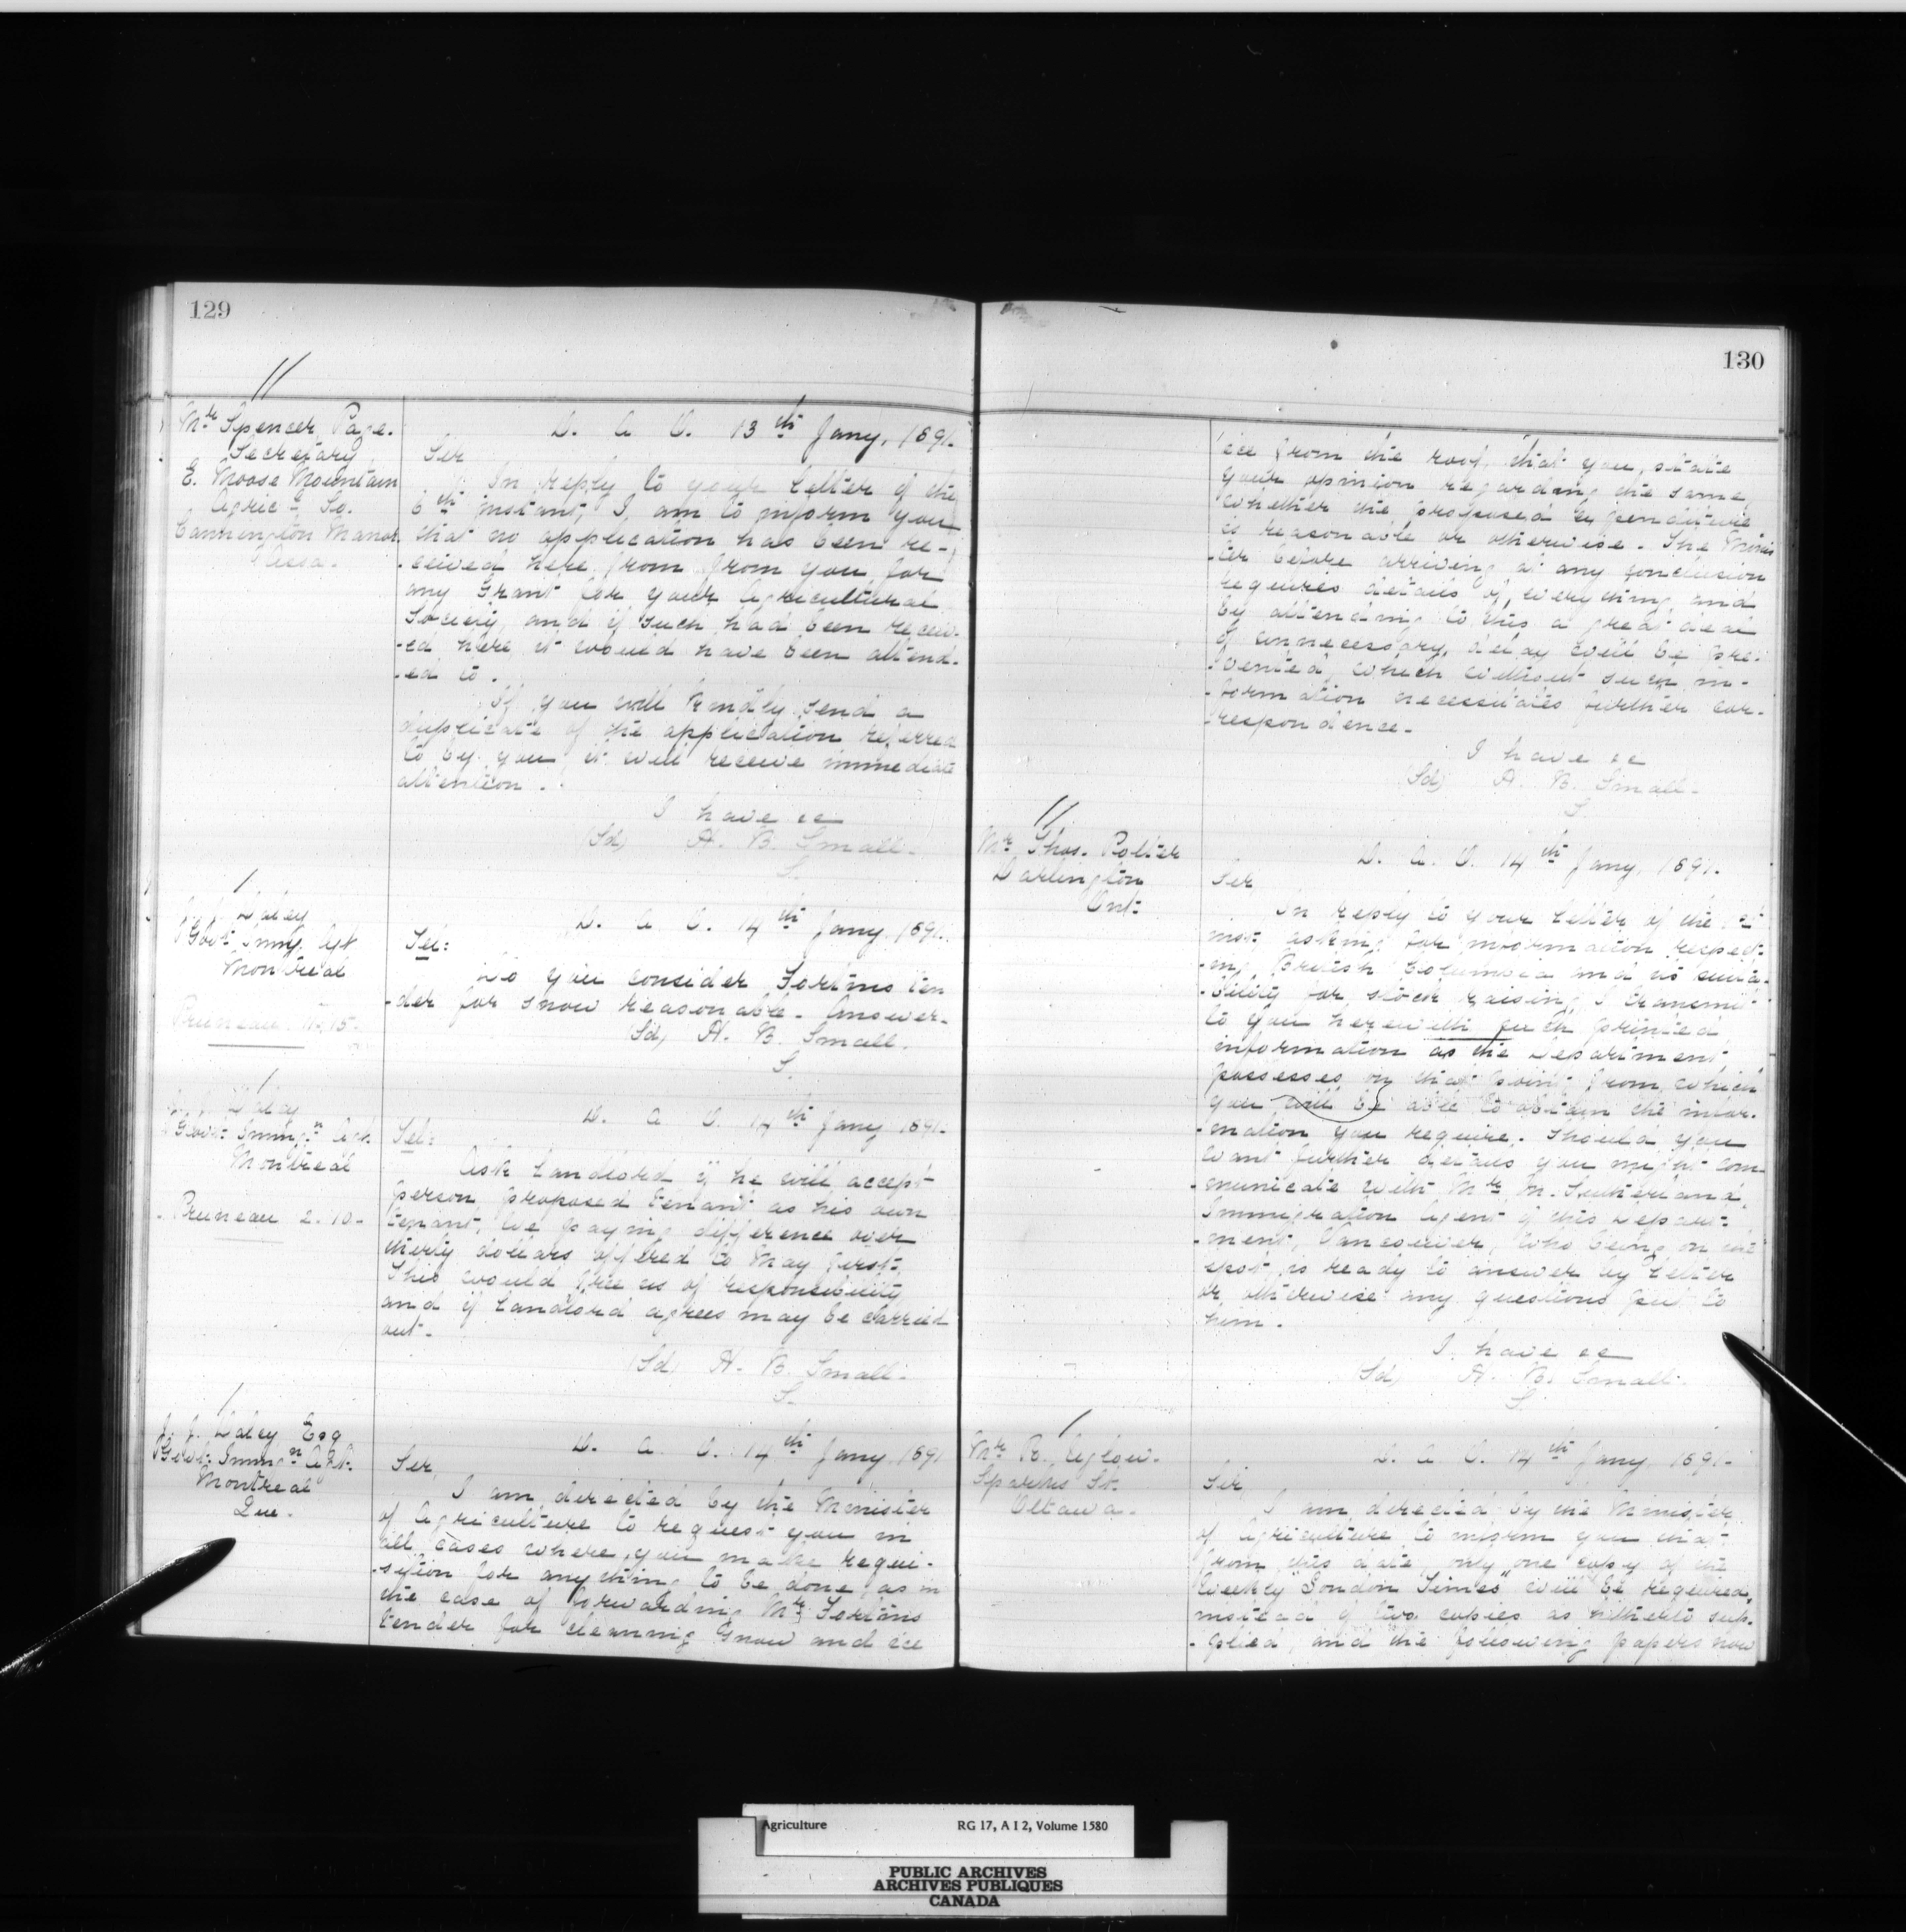 129
11
Mr Spencer Page.
Secretary
E. Moose Mountain
Agric - So.
Cannington Manor
Assa.
D. A O. 13th Jany, 1891.
Sir
In reply to your letter of the
6th instant, I am to inform you
that no application has been re-
-ceived here from from you for
any Grant for your Agricultural
Society, and if such had been receiv-
-ed here, it would have been attend-
-ed to.
If you will kindly send a
duplicate of the application referred
to by you, it will receive immediate
attention.
I have &c
(Sd) H. B. Small.
S.
J. J. Daley
Govt Immg. Agt
Montreal
Pruneau 11.15.
D. A O. 14th Jany. 1891.
Tel:
Do you consider Fortins ten
-der for snow reasonable - Answer.
(Sd) H. B. Small.
S.
J. J. Daley
Govt. Immign Agt.
Montreal
Pruneau 2.10.
D. A O. 14th Jany 1891.
Tel:
Ask landlord if he will accept
person proposed tenant as his own
tenant, we paying difference over
thirty dollars offered to May first.
This would free us of responsibility
and if landlord agrees may be carried
out.
(Sd) H. B. Small.
S.
J. J. Daley Esq
Govt. Immign Agt.
Montreal
Que.
D. A. O. 14th Jany, 1891
Sir,
I am directed by the Minister
of Agriculture to request you in
all cases where you make requi-
-sition for anything to be done, as in
the case of forwarding Mr Fortins
tender for cleaning snow and ice
130
ice from the roof, that you, state
your opinion regarding the same,
whether the proposed expenditure
is reasonable or otherwise. The Minis
-ter before arriving at any conclusion
requires details of everything, and
by attending to this a great deal
of unnecessary delay will be pre-
-vented, which without such in-
-formation necessitates further cor-
-respondence.
I have &c
(Sd) H. B. Small.
S.
11
Mr Thos. Potter
Darlington
Ont:
D. A. O. 14th Jany, 1891.
Sir
In reply to your letter of the
inst. asking for information respect-
-ing British Columbia and its suita-
-bility for stock raising, I transmit
to you herewith such printed
information as the Department
possesses on that point from which
you will be able to obtain the infor-
-mation you require. Should you
want further details you might com-
-municate with Mr M. Sutherland
Immigration Agent of this Depart-
-ment, Vancouver, who being on the
spot, is ready to answer by letter
or otherwise any questions put to
him.
I have &c
(Sd) H. B. Small.
S.
Mr R. Uglow.
Sparks St.
Ottawa.
D. A O. 14th Jany, 1891.
Sir
I am directed by the Minister
of Agriculture to inform you that
from this date, only one copy of the
Weekly "London Times" will be required,
instead of two copies as hitherto sup-
-plied, and the following papers now
Agriculture RG 17, A I 2, Volume 1580
PUBLIC ARCHIVES
ARCHIVES PUBLIQUES
CANADA